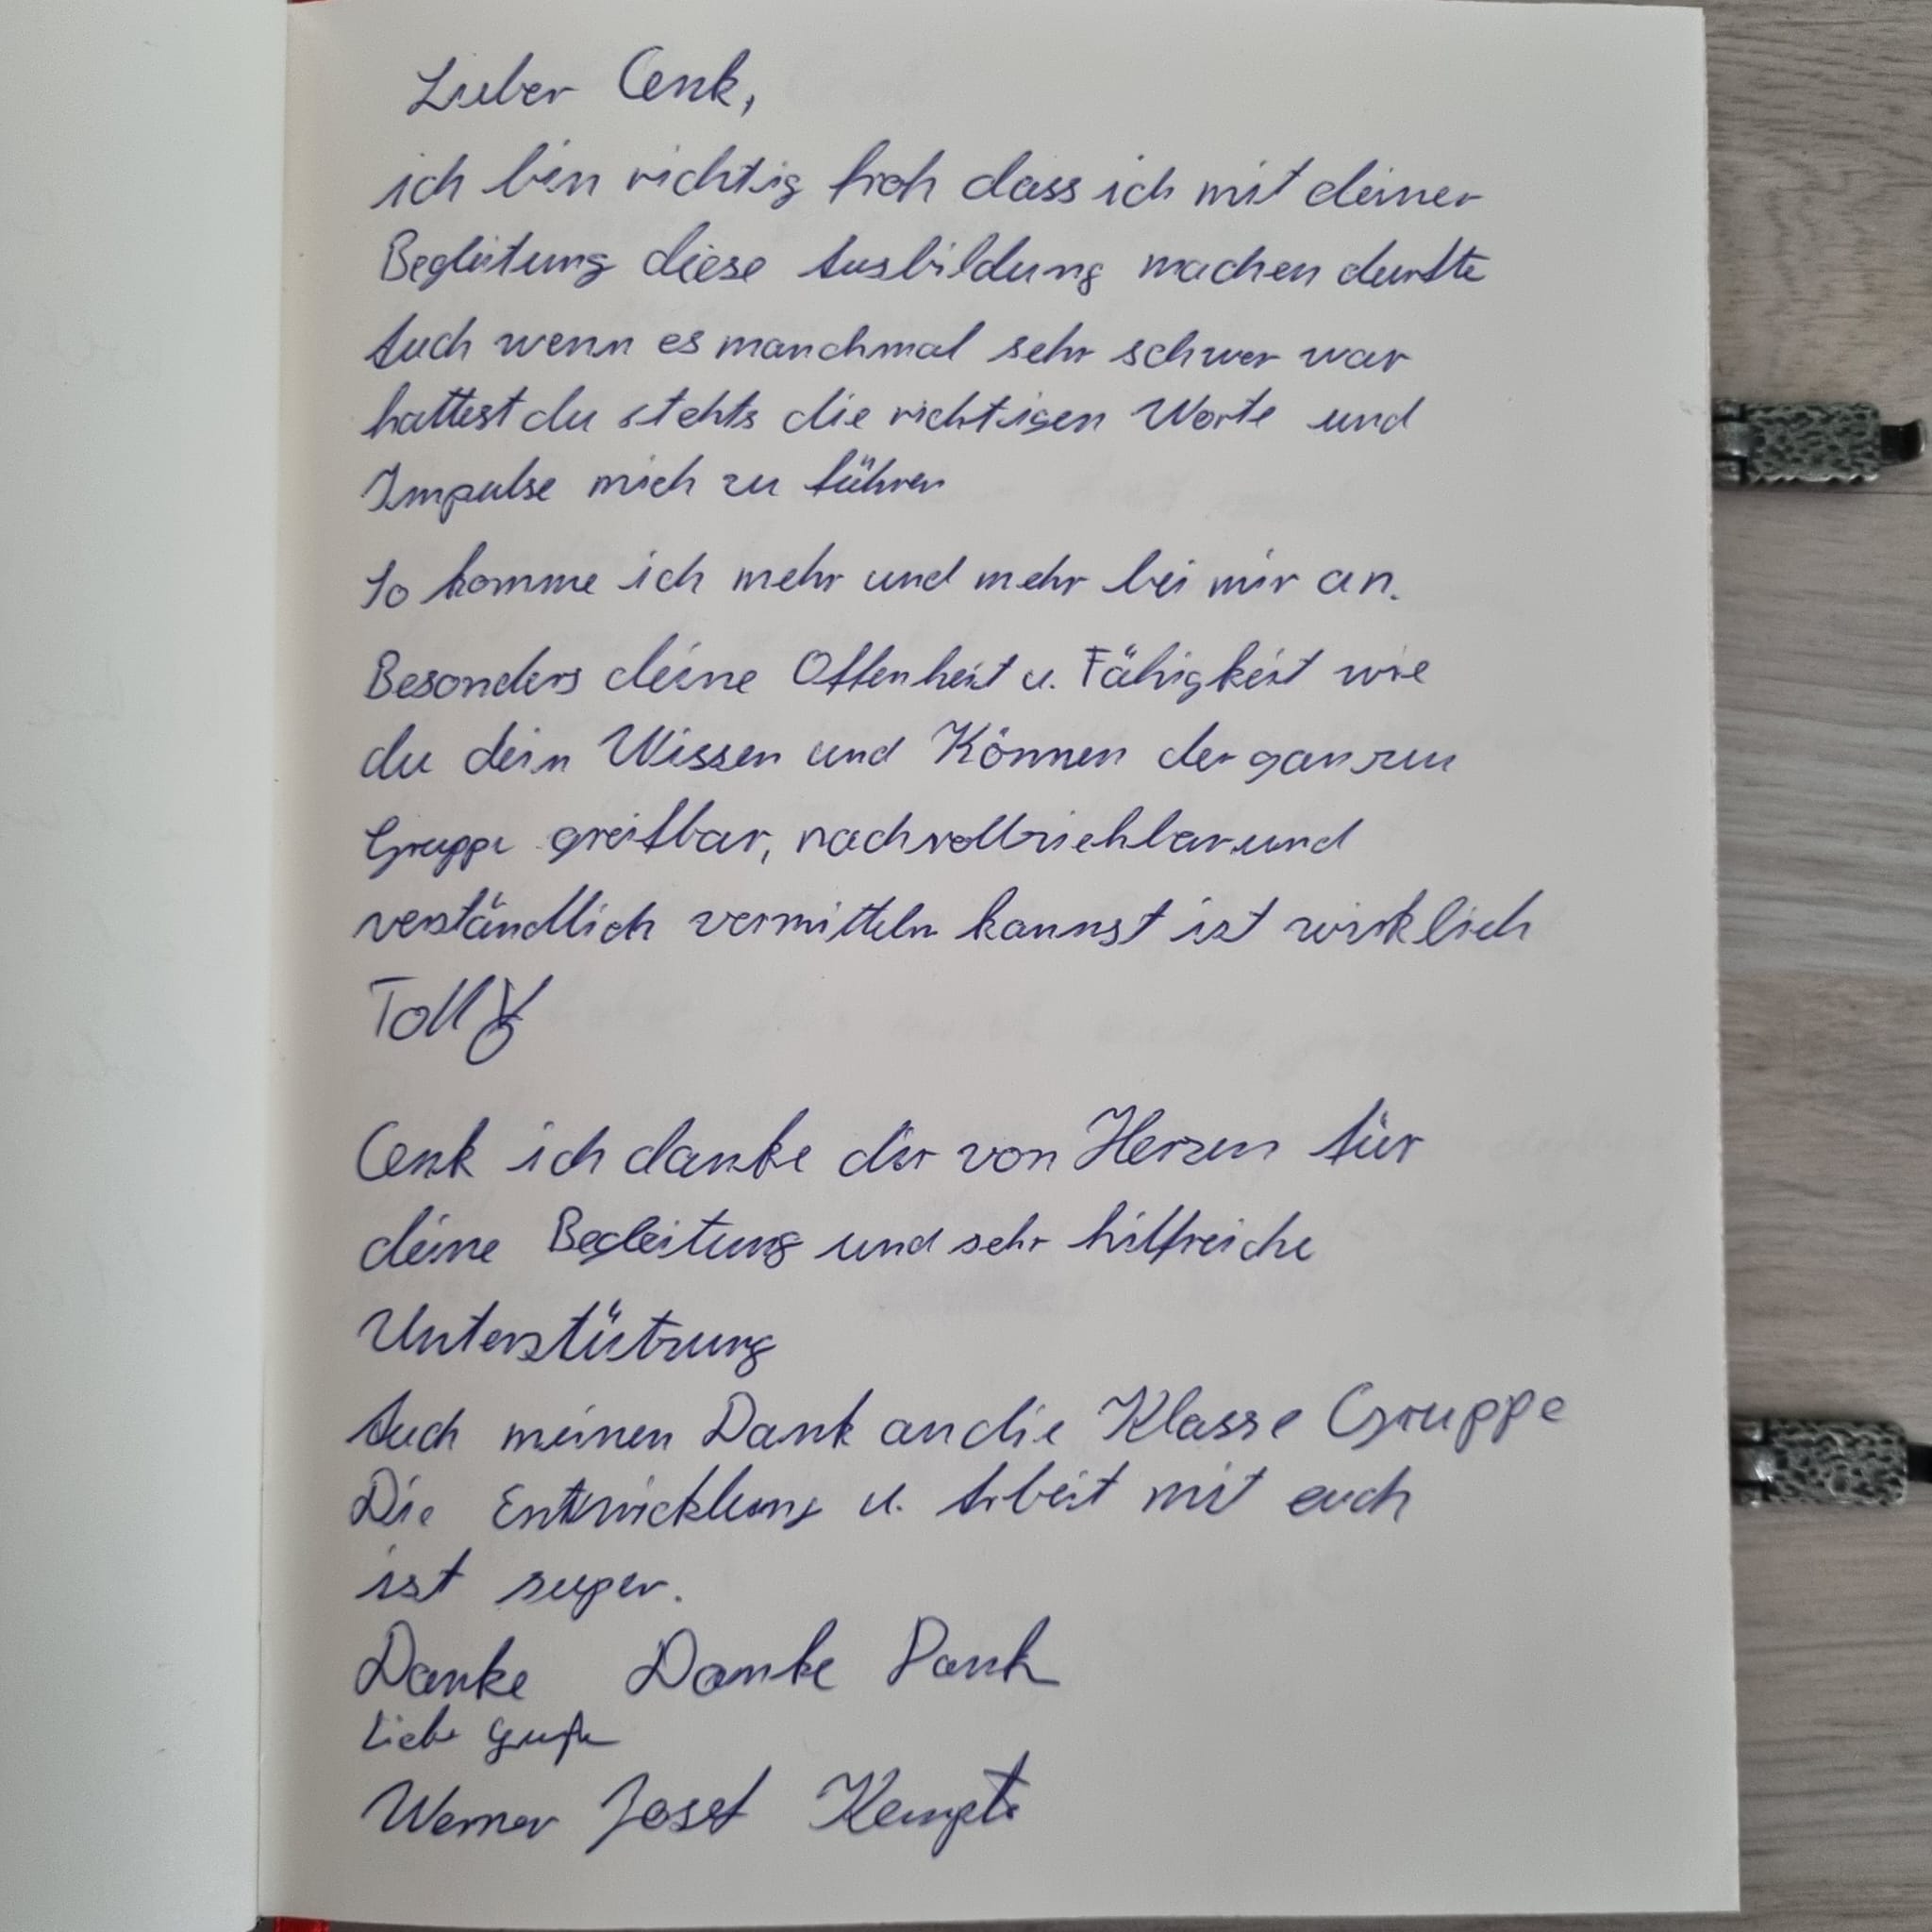 Lieber Cenk,
ich bin richtig froh dass ich mit deiner
Begleitung diese Ausbildung machen durfte
Auch wenn es manchmal sehr schwer war
hattest du stehts die richtigen Worte und
Impulse mich zu führen
So komme ich mehr und mehr bei mir an.
Besonders deine Offenheit u. Fähigkeit wie
du dein Wissen und Können der ganzen
Gruppe greifbar, nachvollziehbar und
verständlich vermitteln kannst ist wirklich
Toll
Cenk ich danke dir von Herzen für
deine Begleitung und sehr hilfreiche
Unterstützung
Auch meinen Dank an die Klasse Gruppe
Die Entwicklung u. Arbeit mit euch
ist super.
Danke Danke Dank
Liebe Grüße
Werner Josef